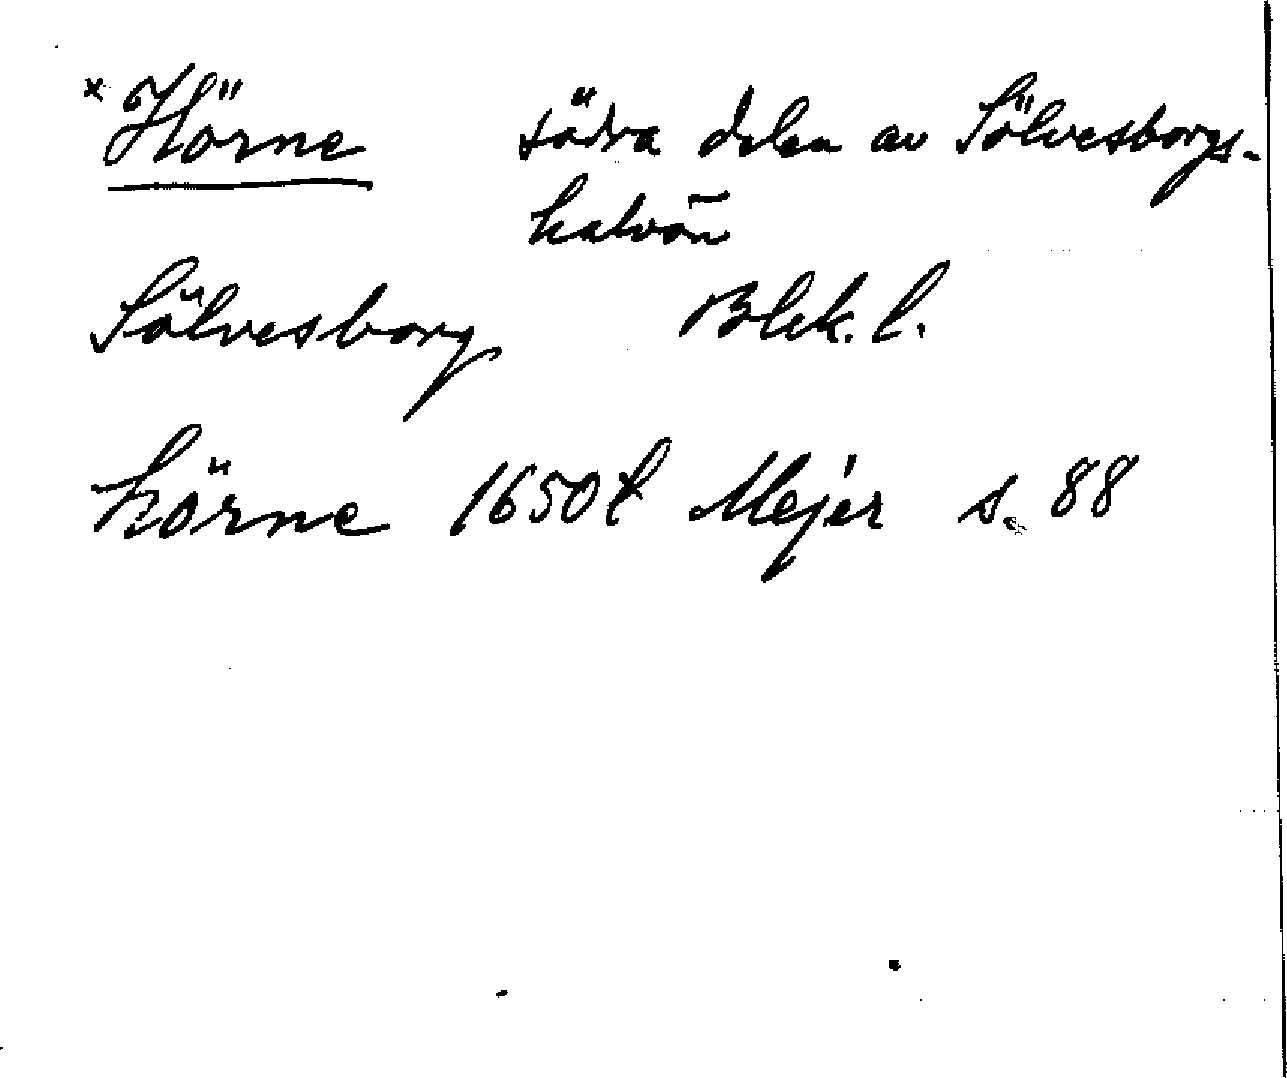 * Hörne södra delen av Sölvesborgs-
halvön
Sölvesborg Blek. l.
hörne 1650 t Mejer s. 88